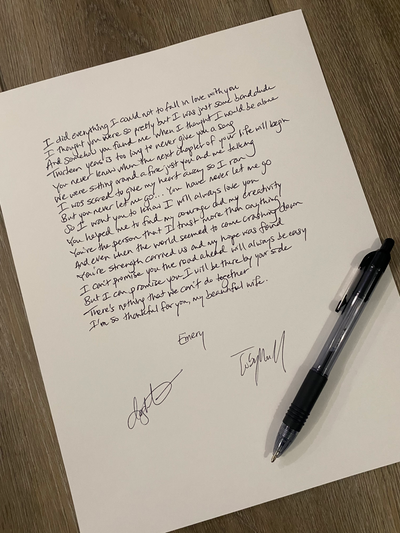 I did everything I could not to fall in love with you
I thought you were so pretty but I was just some band dude
And somehow you found me when I thought I would be alone
Thirteen years is too long to never give you a song
You never know when the next chapter of your life will begin
We were sitting around a fire just you and me talking
I was scared to give my heart away so I ran
But you never let me go... You have never let me go
So I want you to know I will always love you
You helped me to find my courage and my creativity
You're the person that I trust more than anything
And even when the world seemed to come crashing down
You're strength carried us and my hope was found
I can't promise you the road ahead will always be easy
But I can promise you I will be there by your side
There's nothing that we can't do together
I'm so thankful for you, my beautiful wife.
Emery